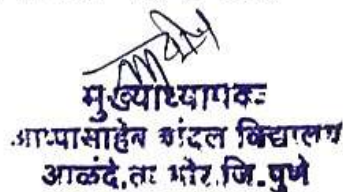 मुख्याध्यापक
आप्पासाहेब बांदल विद्यालय
आळंदे, ता. भोर, जि. पुणे